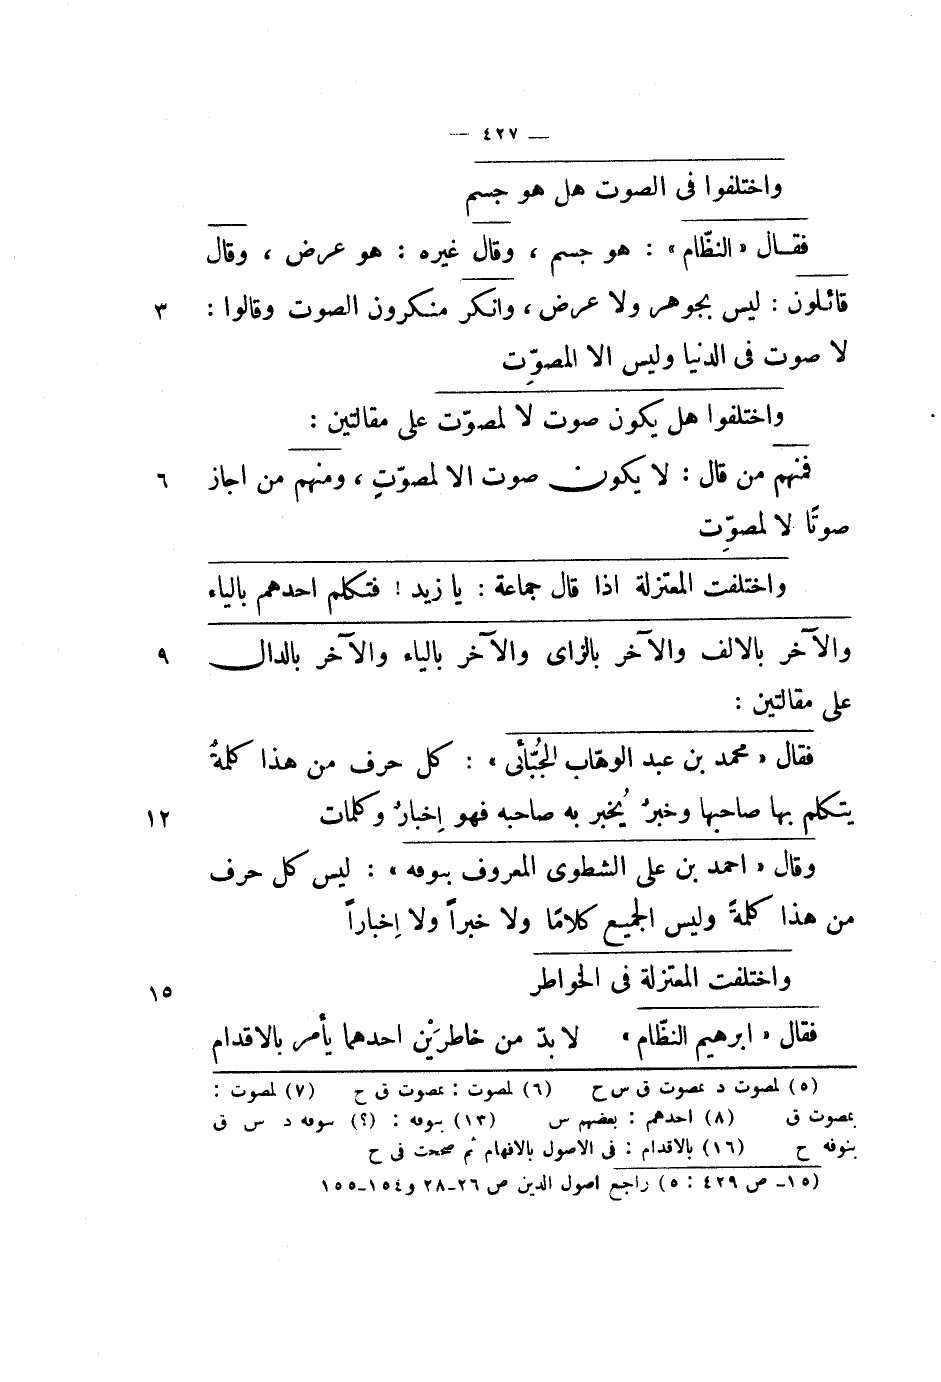 — ٤٢٧ —
واختلفوا فى الصوت هل هو جسم
فقال «النظّام» : هو جسم ، وقال غيره : هو عرض ، وقال
قائلون : ليس بجوهر ولا عرض ، وانكر منكرون الصوت وقالوا : ٣
لا صوت فى الدنيا وليس الا المصوِّت
واختلفوا هل يكون صوت لا لمصوّت على مقالتين :
فمنهم من قال : لا يكون صوت الا لمصوّتٍ ، ومنهم من اجاز ٦
صوتًا لا لمصوِّت
واختلفت المعتزلة اذا قال جماعة : يا زيد ! فتكلم احدهم بالياء
والآخر بالالف والآخر بالزاى والآخر بالياء والآخر بالدال ٩
على مقالتين :
فقال «محمد بن عبد الوهّاب الجُبّائى» : كل حرف من هذا كلمةٌ
يتكلم بها صاحبها وخبرٌ يُخبر به صاحبه فهو إخبارٌ وكلمات ١٢
وقال «احمد بن على الشطوى المعروف بىوفه» : ليس كل حرف
من هذا كلمةً وليس الجميع كلامًا ولا خبراً ولا إخباراً
واختلفت المعتزلة فى الخواطر ١٥
فقال «ابرهيم النظّام» لا بدّ من خاطرَيْن احدهما يأمر بالاقدام
(٥) لمصوت د بمصوت ق س ح (٦) لمصوت : بمصوت ق ح (٧) لمصوت :
بمصوت ق (٨) احدهم : بعضهم س (١٣) بىوفه : (؟) ىىوفه د س ق
بنوفه ح (١٦) بالاقدام : فى الاصول بالافهام ثم صححت فى ح
(١٥ــ ص ٤٢٩ : ٥) راجع اصول الدين ص ٢٦ــ٢٨ و١٥٤ــ١٥٥